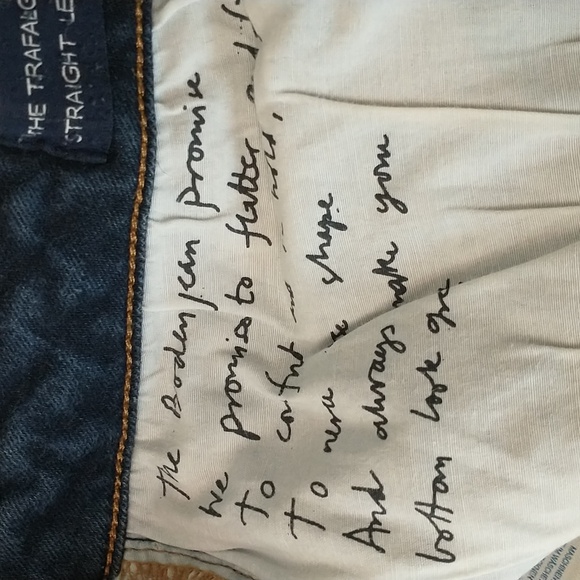 THE TRAFALG
STRAIGHT LE
The Boden jean promise
We promise to flatter and f
to comfort and hold,
to never shape
And always make your
bottom look